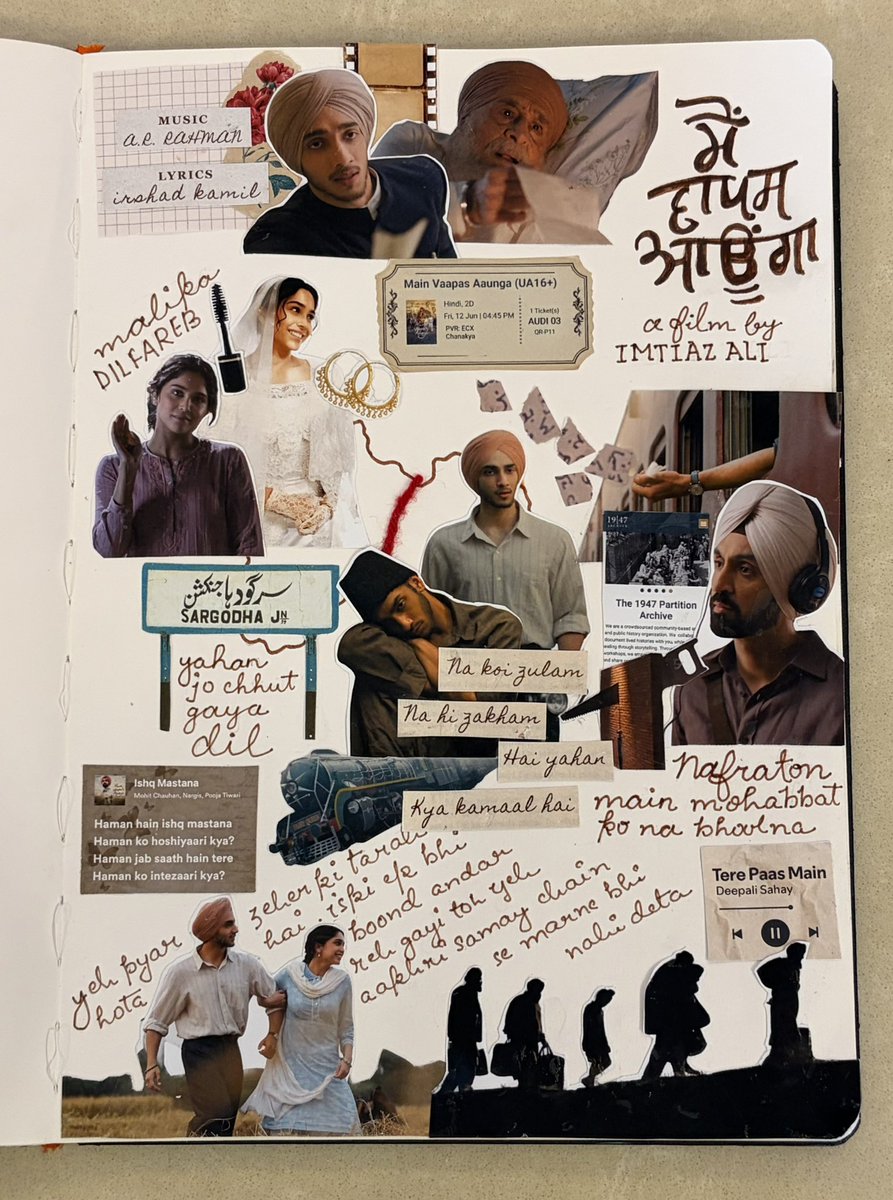 MUSIC
A.R. RAHMAN
LYRICS
irshad kamil
ਮੈਂ
ਵਾਪਸ
ਆਉਂਗਾ
a film by
IMTIAZ ALI
Main Vaapas Aaunga (UA16+)
Hindi, 2D
Fri, 12 Jun | 04:45 PM
PVR: ECX
Chanakya
1 Ticket(s)
AUDI 03
QR-P11
malika
DILFAREB
سرگودہا جنکشن
SARGODHA JN
yahan
jo chhut
gaya
dil
19|47
The 1947 Partition
Archive
We are a crowdsourced community-based
and public history organization. We collab
document lived histories with you, while
Na koi zulam
Na hi zakham
Hai yahan
Kya kamaal hai
Nafraton
main mohabbat
ko na bhoolna
Ishq Mastana
Mohit Chauhan, Nargis, Pooja Tiwari
Haman hain ishq mastana
Haman ko hoshiyaari kya?
Haman jab saath hain tere
Haman ko intezaari kya?
Tere Paas Main
Deepali Sahay
yeh pyar
hota
zeher ki tarah
hai, iski ek bhi
boond andar
reh gayi toh yeh
aakhri samay chain
se marne bhi
nahi deta